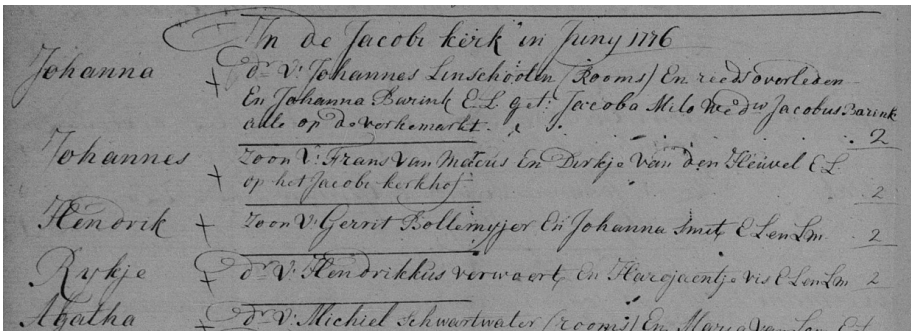 In de Jacobi kerk in Juny 1776
Johanna + dr V: Johannes Linschooten (Rooms) En reeds overleden
En Johanna Barink E.L. get: Jacoba Milo Wed: Jacobus Barink
alle op de verkemarkt. 2
Johannes + Zoon V: Frans Van Mateus En Dirkje Van den Heuvel E L
op het Jacobi kerkhof 2
Hendrik + Zoon V: Gerrit Bollemyjer En Johanna Smit, E L en Lm. 2
Rykje + dr V: Hendrikkus verwoert, En Vis E L en Lm 2
Agatha + dr V: Michiel Schwartwater (rooms) En Maria van